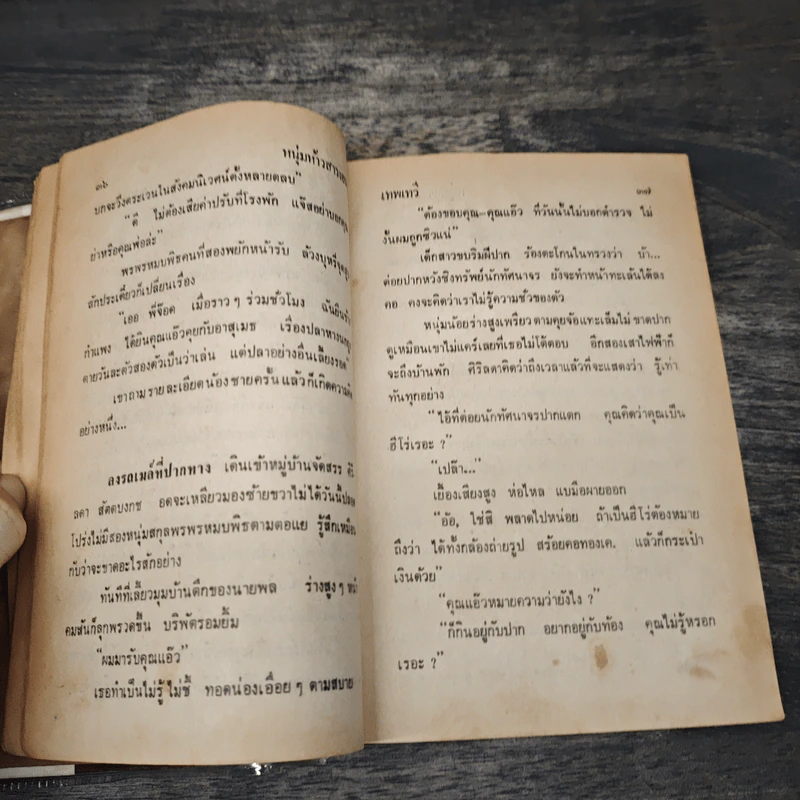 ๓๖
หนุ่มห้าวสาว
บกจะวิ่งตระเวนในสังคมนิเวศน์ตั้งหลายตลบ”
“ดี ไม่ต้องเสียค่าปรับที่โรงพัก แจ๊สอย่าบอกคุณ
ย่าหรือคุณพ่อล่ะ”
พรพรหมบพิธคนที่สองพยักหน้ารับ ล้วงบุหรี่
สักประเดี๋ยวก็เปลี่ยนเรื่อง
“เออ พี่จ๊อด เมื่อราว ๆ ร่วมชั่วโมง ฉันยืน
กำแพง ได้ยินคุณแอ๊วคุยกับอาสุเมธ เรื่องปลาหางนกยูง
ตายวันละตัวสองตัวเป็นว่าเล่น แต่ปลาอย่างอื่นเลี้ยงรอด”
เขาถามรายละเอียดน้องชายครั้น แล้วก็เกิดความคิด
อย่างหนึ่ง...
ลงรถเมล์ที่ปากทาง เดินเข้าหมู่บ้านจัดสรร ศิริ
ลดา สัตตบงกช อดจะเหลียวมองซ้ายขวาไม่ได้วันนี้ปลอด
โปร่งไม่มีสองหนุ่มสกุลพรพรหมบพิธตามตอแย รู้สึกเหมือน
กับว่าจะขาดอะไรสักอย่าง
ทันทีที่เลี้ยวมุมบ้านตึกของนายพล ร่างสูง ๆ หน้า
คมสันก็ลุกพรวดขึ้น บริพัตรอมยิ้ม
“ผมมารับคุณแอ๊ว”
เธอทำเป็นไม่รู้ไม่ชี้ ทอดน่องเอื่อย ๆ ตามสบาย
เทพเทวี
๓๗
“ต้องขอบคุณ-คุณแอ๊ว ที่วันนั้นไม่บอกตำรวจ ไม่
งั้นผมถูกซิวแน่”
เด็กสาวขบริมฝีปาก ร้องตะโกนในทรวงว่า บ้า...
ต่อยปากหวังชิงทรัพย์นักทัศนาจร ยังจะทำหน้าทะเล้นได้ลง
คอ คงจะคิดว่าเราไม่รู้ความชั่วของตัว
หนุ่มน้อยร่างสูงเพรียวตามคุยจ้อแทะเล็มไม่ขาดปาก
ดูเหมือนเขาไม่แคร์เลยที่เธอไม่โต้ตอบ อีกสองเสาไฟฟ้าก็
จะถึงบ้านพัก ศิริลดาคิดว่าถึงเวลาแล้วที่จะแสดงว่า รู้เท่า
ทันทุกอย่าง
“ไอ้ที่ต่อยนักทัศนาจรปากแตก คุณคิดว่าคุณเป็น
ฮีโร่เรอะ ?”
“เปล๊า...”
เยื้องเสียงสูง ห่อไหล แบมือผายออก
“อ้อ, ใช่สิ พลาดไปหน่อย ถ้าเป็นฮีโร่ต้องหมาย
ถึงว่า ได้ทั้งกล้องถ่ายรูป สร้อยคอทองเค. แล้วก็กระเป๋า
เงินด้วย”
“คุณแอ๊วหมายความว่ายังไง ?”
“ก็กินอยู่กับปาก อยากอยู่กับท้อง คุณไม่รู้หรอก
เรอะ ?”